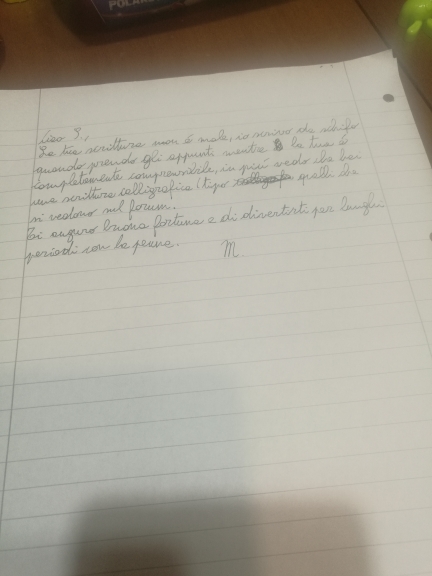 POLAR
Ciao S.,
La tua scrittura non è male, io scrivo da schifo
quando prendo gli appunti mentre la tua è
completamente comprensibile, in più vedo che hai
una scrittura calligrafica (tipo quelli che
si vedono sul forum.
Ti auguro buona fortuna e di divertirti per lunghi
periodi con la penna.
M